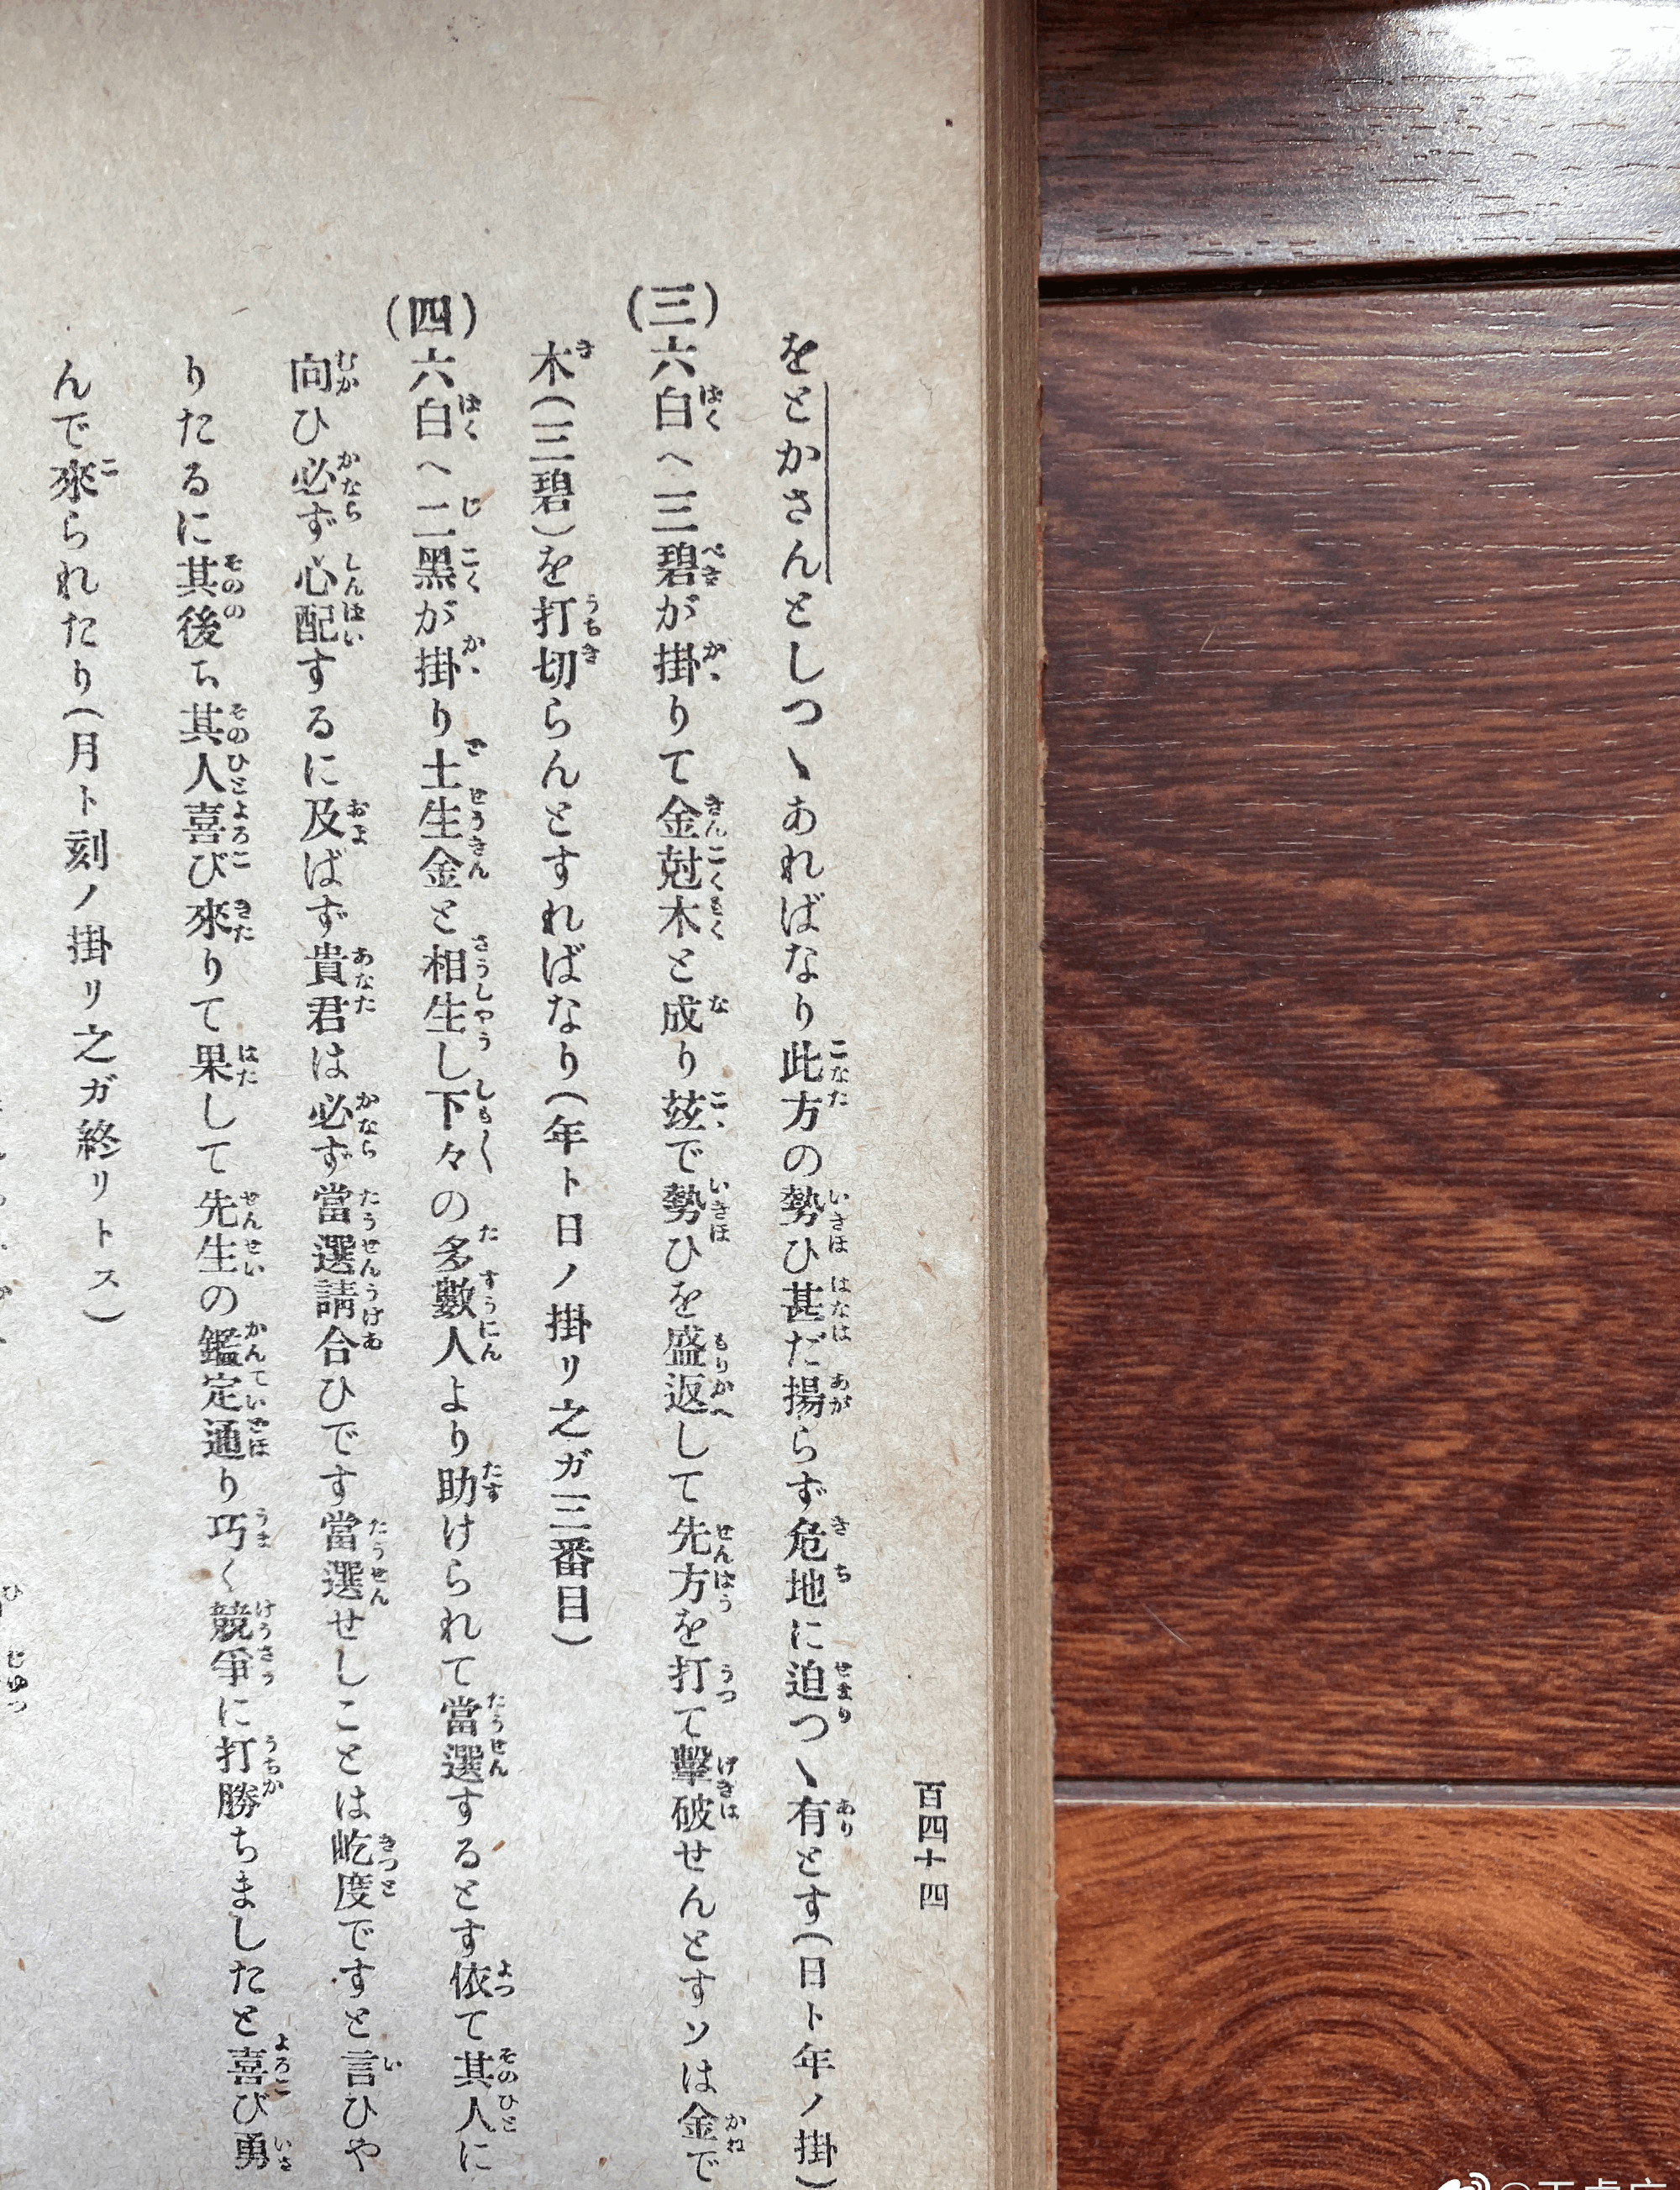 百四十四
をとかさんとしつゝあればなり此方の勢ひ甚だ揚らず危地に迫つゝ有とす(日ト年ノ掛)
(三)六白へ三碧が掛りて金尅木と成り茲で勢ひを盛返して先方を打て擊破せんとすソは金で
木(三碧)を打切らんとすればなり(年ト日ノ掛リ之ガ三番目)
(四)六白へ二黑が掛り土生金と相生し下々の多數人より助けられて當選するとす依て其人に
向ひ必ず心配するに及ばず貴君は必ず當選請合ひです當選せしことは屹度ですと言ひや
りたるに其後ち其人喜び來りて果して先生の鑑定通り巧く競爭に打勝ちましたと喜び勇
んで來られたり(月ト刻ノ掛リ之ガ終リトス)